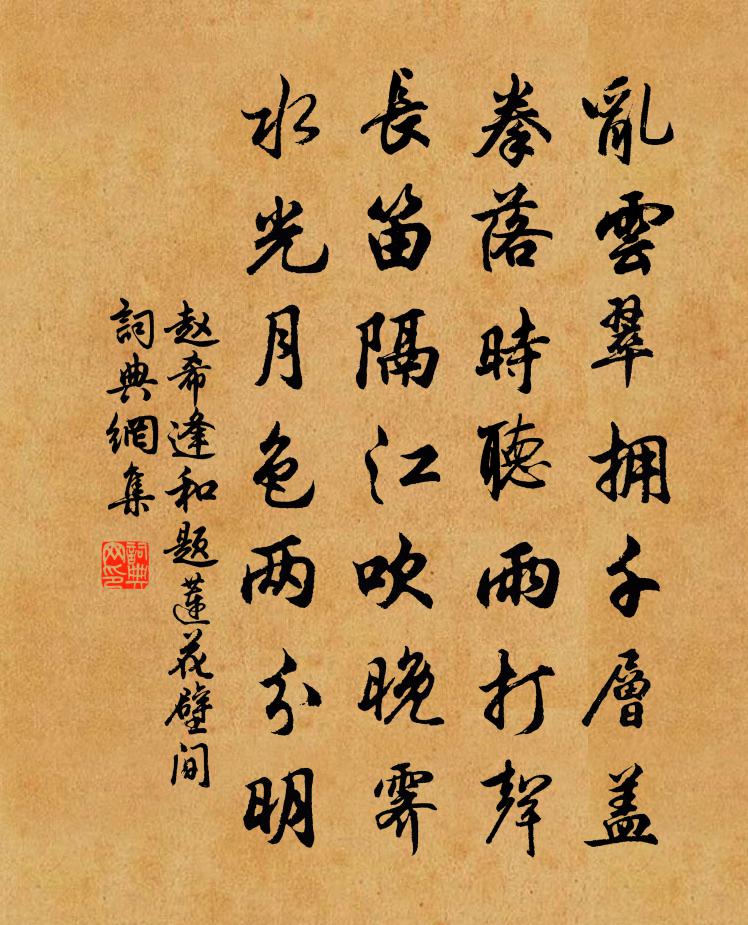 亂雲翠拥千層盖
拳落時聽雨打聲
長笛隔江吹晚霽
水光月色两分明
赵希逢和题蓮花壁间
詞典網集
詞典网印